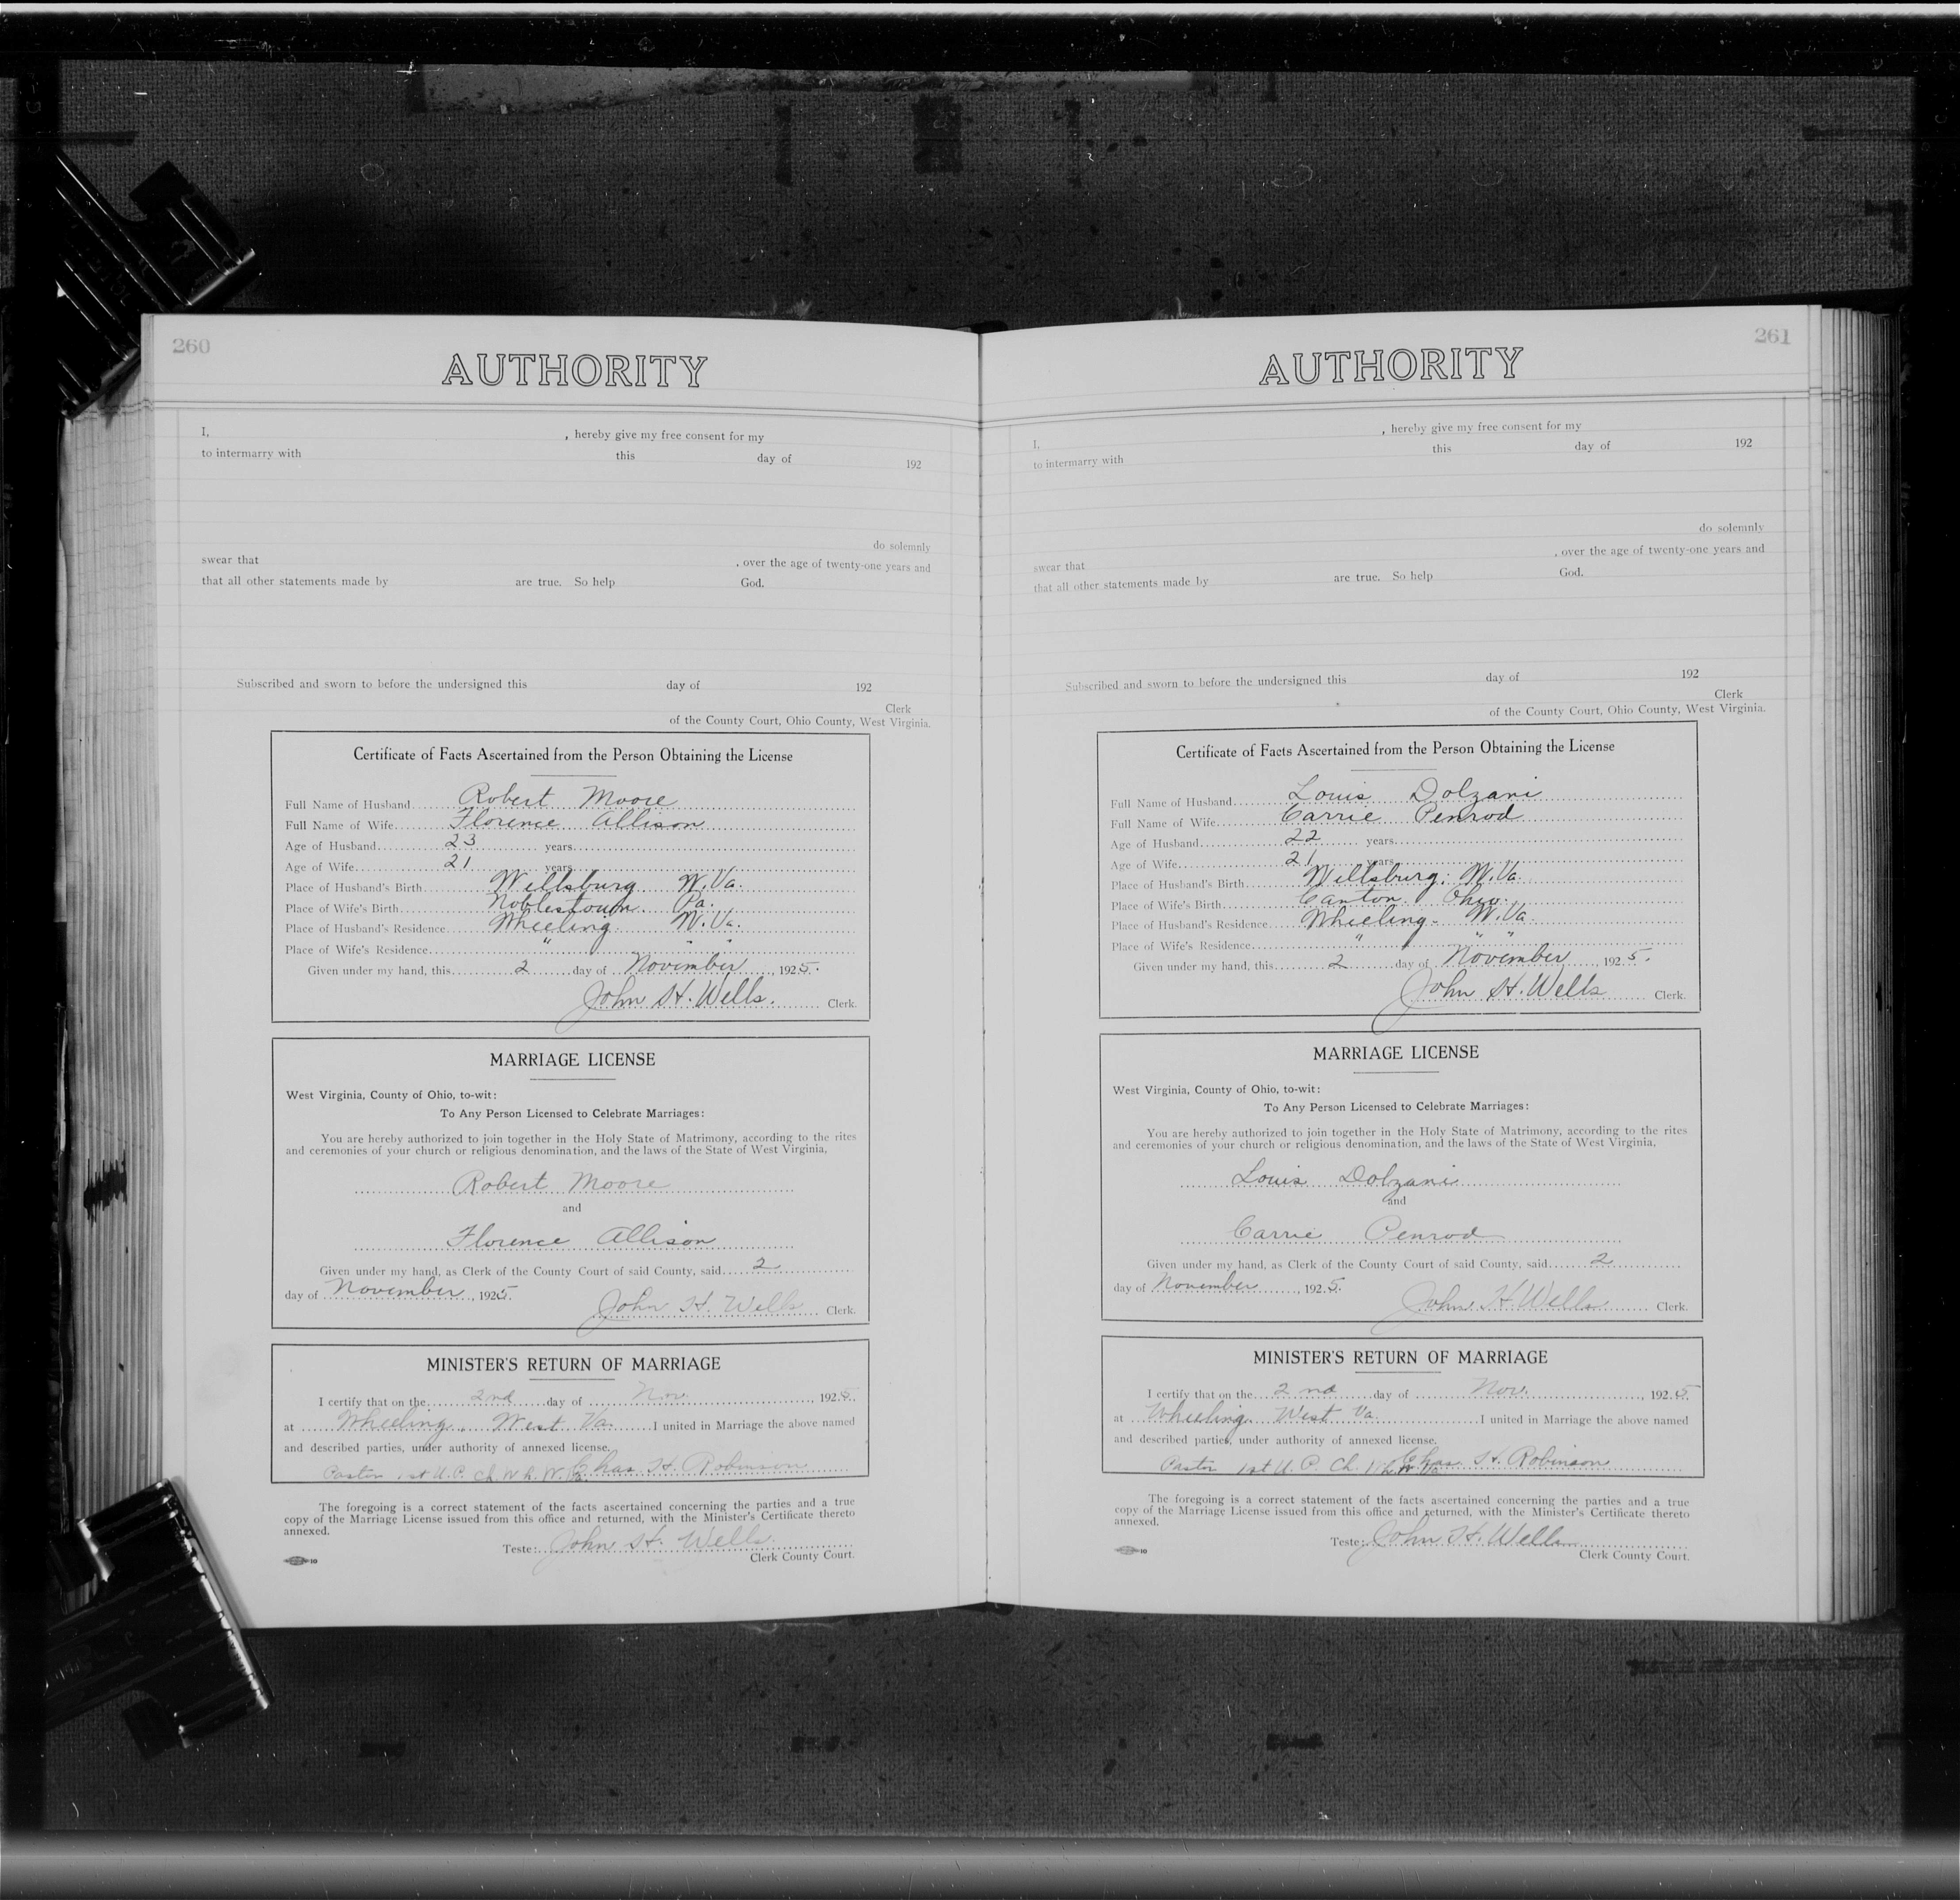 260
AUTHORITY
I, , hereby give my free consent for my
to intermarry with this day of 192
do solemnly
swear that , over the age of twenty-one years and
that all other statements made by are true. So help God.
Subscribed and sworn to before the undersigned this day of 192
Clerk
of the County Court, Ohio County, West Virginia.
Certificate of Facts Ascertained from the Person Obtaining the License
Full Name of Husband Robert Moore
Full Name of Wife Florence Allison
Age of Husband 23 years
Age of Wife 21 years
Place of Husband's Birth Wellsburg W. Va.
Place of Wife's Birth Noblestown Pa.
Place of Husband's Residence Wheeling W. Va.
Place of Wife's Residence " " "
Given under my hand, this 2 day of November, 1925.
John H. Wells. Clerk.
MARRIAGE LICENSE
West Virginia, County of Ohio, to-wit:
To Any Person Licensed to Celebrate Marriages:
You are hereby authorized to join together in the Holy State of Matrimony, according to the rites
and ceremonies of your church or religious denomination, and the laws of the State of West Virginia,
Robert Moore
and
Florence Allison
Given under my hand, as Clerk of the County Court of said County, said 2
day of November, 1925.
John H. Wells Clerk.
MINISTER'S RETURN OF MARRIAGE
I certify that on the 2nd day of Nov. , 1925.
at Wheeling, West Va. I united in Marriage the above named
and described parties, under authority of annexed license.
Pastor 1st U. P. Ch. Chas. H. Robinson
The foregoing is a correct statement of the facts ascertained concerning the parties and a true
copy of the Marriage License issued from this office and returned, with the Minister's Certificate thereto
annexed.
Teste: John H. Wells
10 Clerk County Court.
261
AUTHORITY
I, , hereby give my free consent for my
to intermarry with this day of 192
do solemnly
swear that , over the age of twenty-one years and
that all other statements made by are true. So help God.
Subscribed and sworn to before the undersigned this day of 192
Clerk
of the County Court, Ohio County, West Virginia.
Certificate of Facts Ascertained from the Person Obtaining the License
Full Name of Husband Louis Dolzani
Full Name of Wife Carrie Penrod
Age of Husband 22 years
Age of Wife 21 years
Place of Husband's Birth Wellsburg, W. Va.
Place of Wife's Birth Canton Ohio.
Place of Husband's Residence Wheeling - W. Va.
Place of Wife's Residence " " "
Given under my hand, this 2 day of November, 1925.
John H. Wells Clerk.
MARRIAGE LICENSE
West Virginia, County of Ohio, to-wit:
To Any Person Licensed to Celebrate Marriages:
You are hereby authorized to join together in the Holy State of Matrimony, according to the rites
and ceremonies of your church or religious denomination, and the laws of the State of West Virginia,
Louis Dolzani
and
Carrie Penrod
Given under my hand, as Clerk of the County Court of said County, said 2
day of November, 1925.
John H. Wells Clerk.
MINISTER'S RETURN OF MARRIAGE
I certify that on the 2nd day of Nov. , 1925
at Wheeling, West Va. I united in Marriage the above named
and described parties, under authority of annexed license.
Pastor 1st U. P. Ch. Chas. H. Robinson
The foregoing is a correct statement of the facts ascertained concerning the parties and a true
copy of the Marriage License issued from this office and returned, with the Minister's Certificate thereto
annexed.
Teste: John H. Wells
10 Clerk County Court.